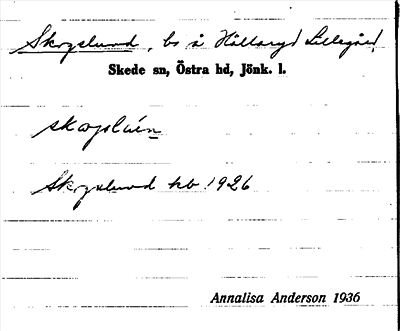 Skogslund, bs å Hållaryd Lillegård,
Skede sn, Östra hd, Jönk. l.
Skogslund hb 1926
Annalisa Anderson 1936